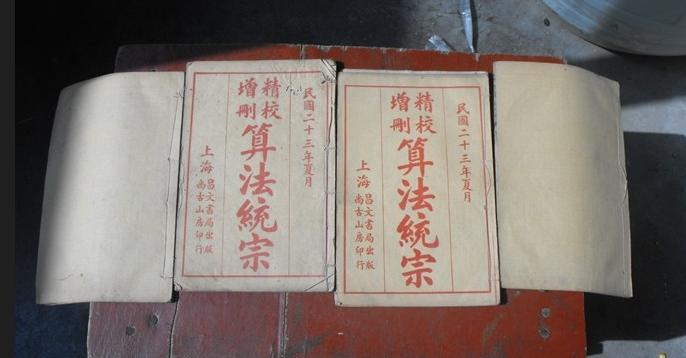 民國二十三年夏月
精校
增刪
算法統宗
上海
昌文書局出版
尚古山房印行
民國二十三年夏月
精校
增刪
算法統宗
上海
昌文書局出版
尚古山房印行